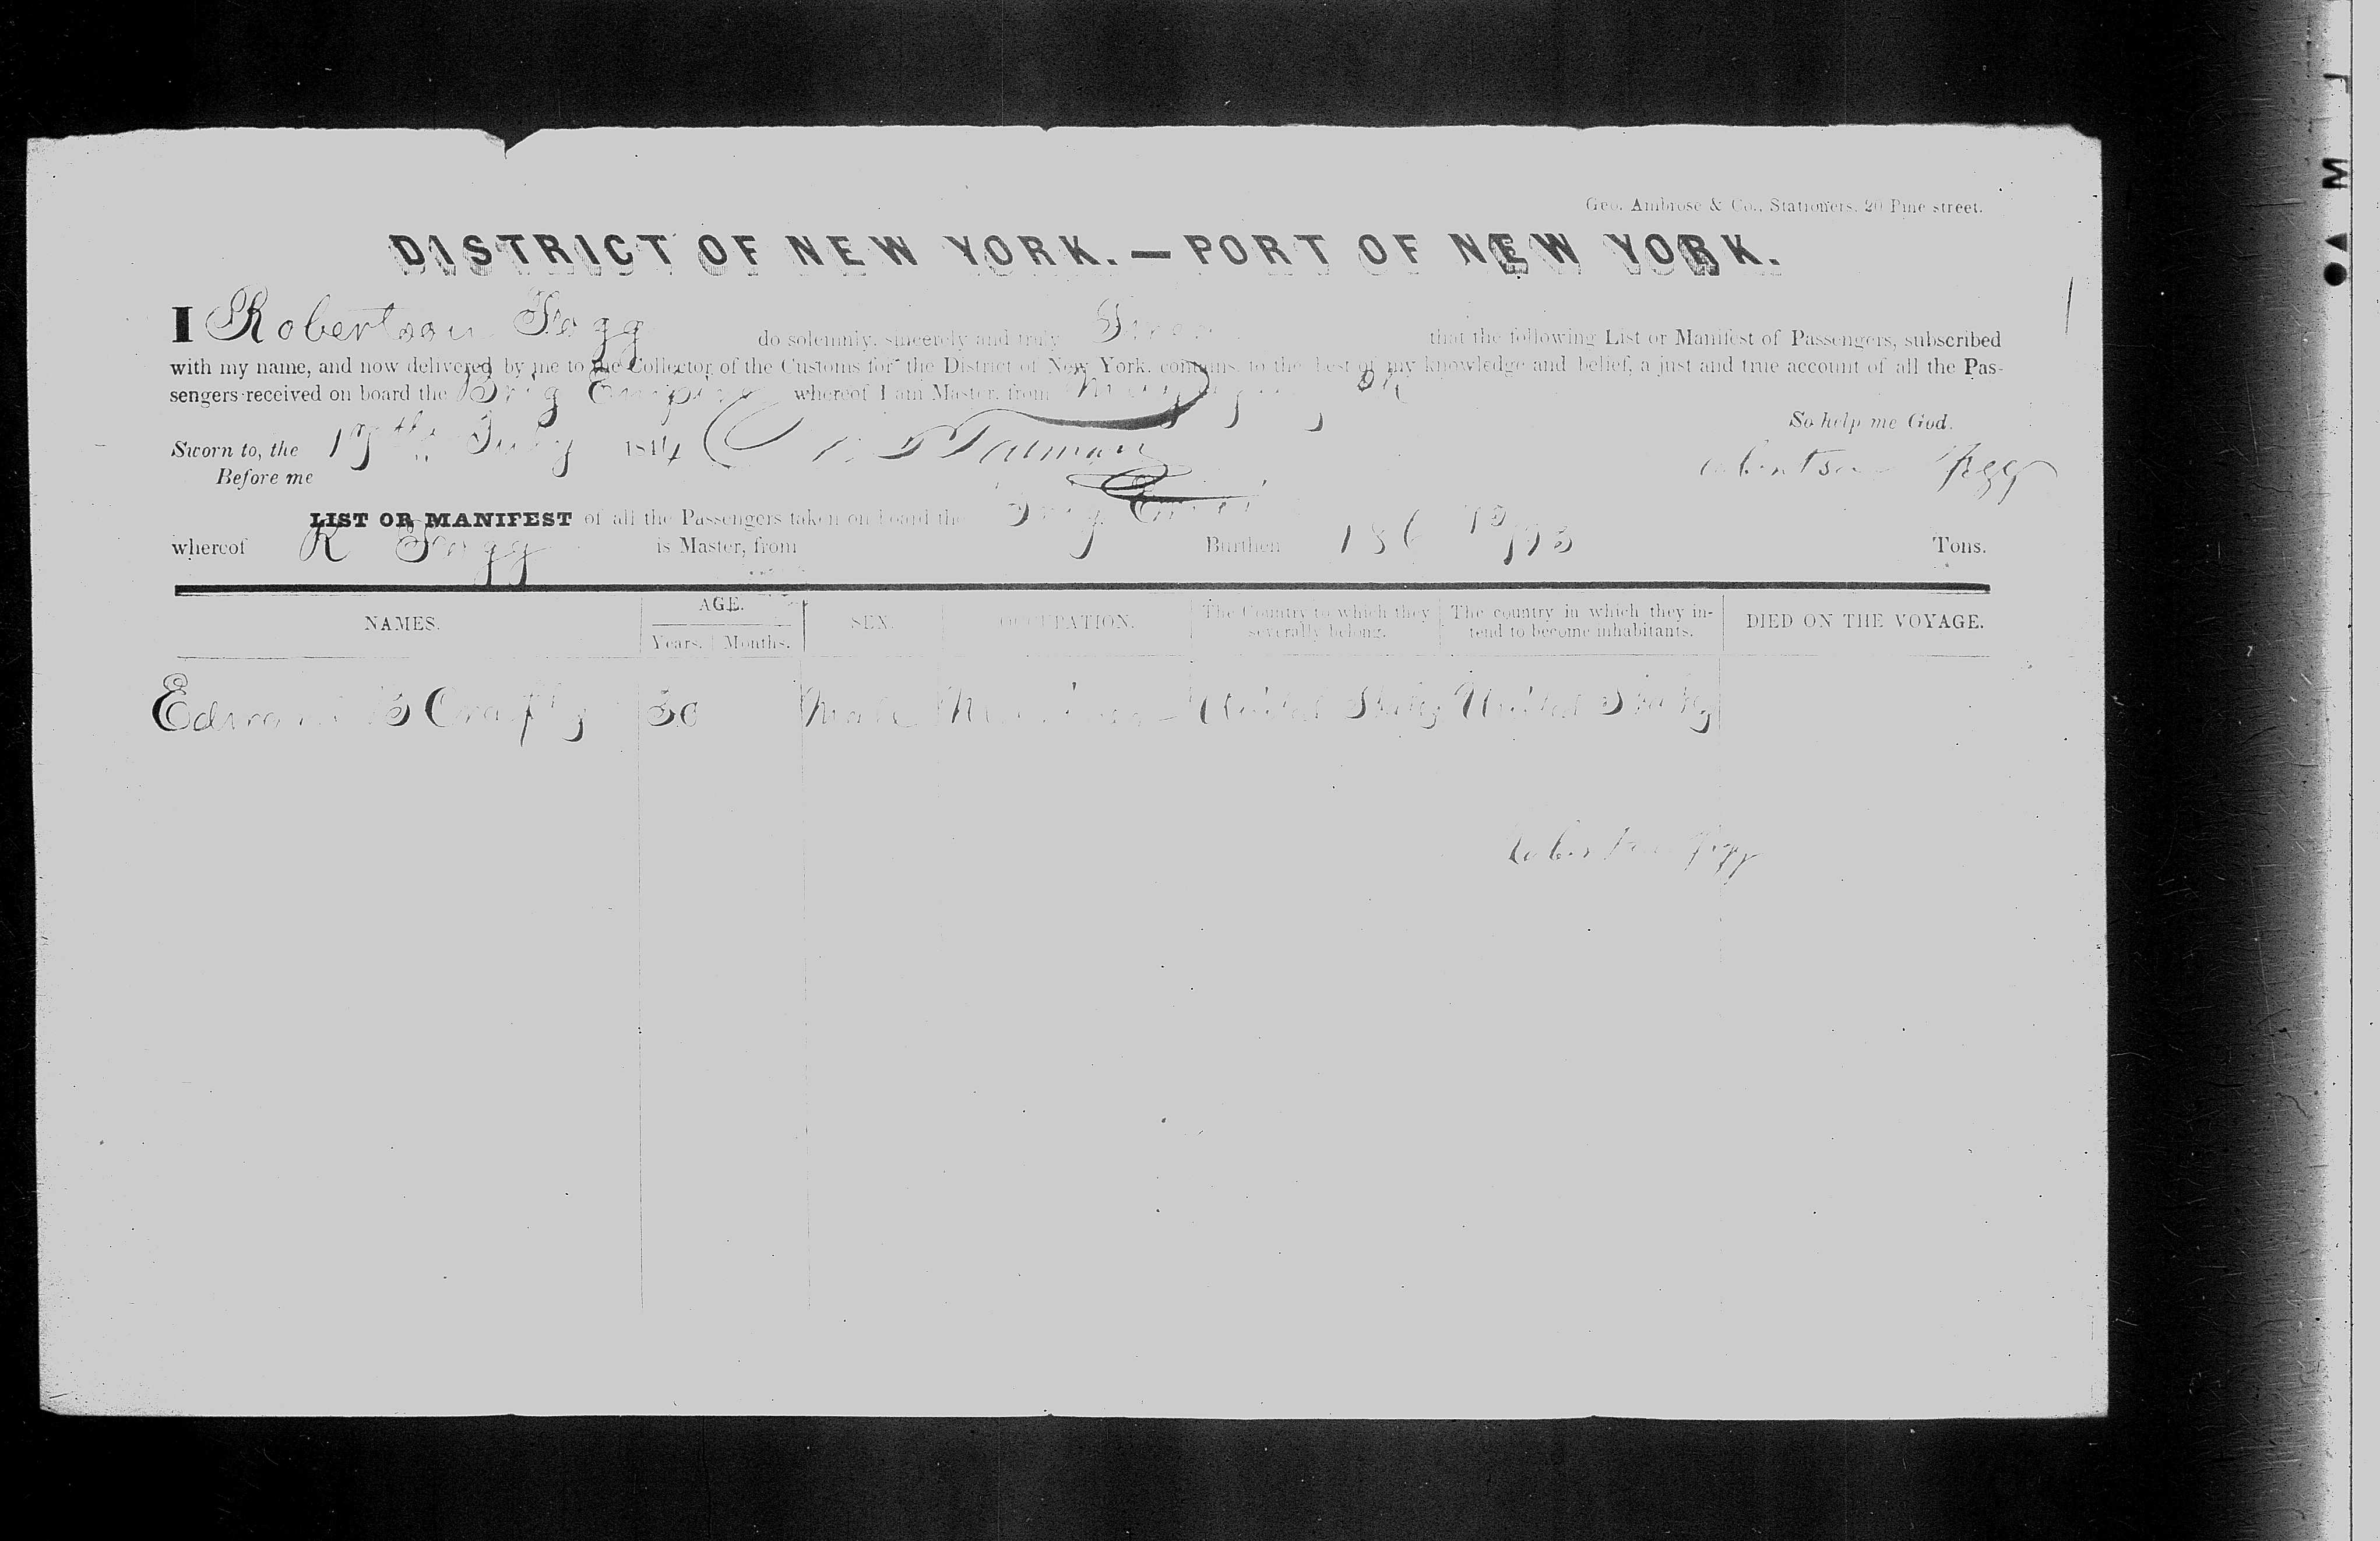 Geo. Ambrose & Co., Stationers, 20 Pine street.
DISTRICT OF NEW YORK. — PORT OF NEW YORK.
I Robertson Fogg do solemnly, sincerely and truly Swear that the following List or Manifest of Passengers, subscribed
with my name, and now delivered by me to the Collector of the Customs for the District of New York, contains, to the best of my knowledge and belief, a just and true account of all the Pas-
sengers received on board the Brig Empire whereof I am Master, from
So help me God.
Sworn to, the 17th July 1844 Talman Robertson Fogg
Before me
LIST OR MANIFEST of all the Passengers taken on board the Brig Empire
whereof R Fogg is Master, from Burthen Tons.
NAMES. AGE. Years. Months. SEX. OCCUPATION. The Country to which they severally belong. The country in which they in-tend to become inhabitants. DIED ON THE VOYAGE.
Edward B 30 Male United States United States
Robertson Fogg